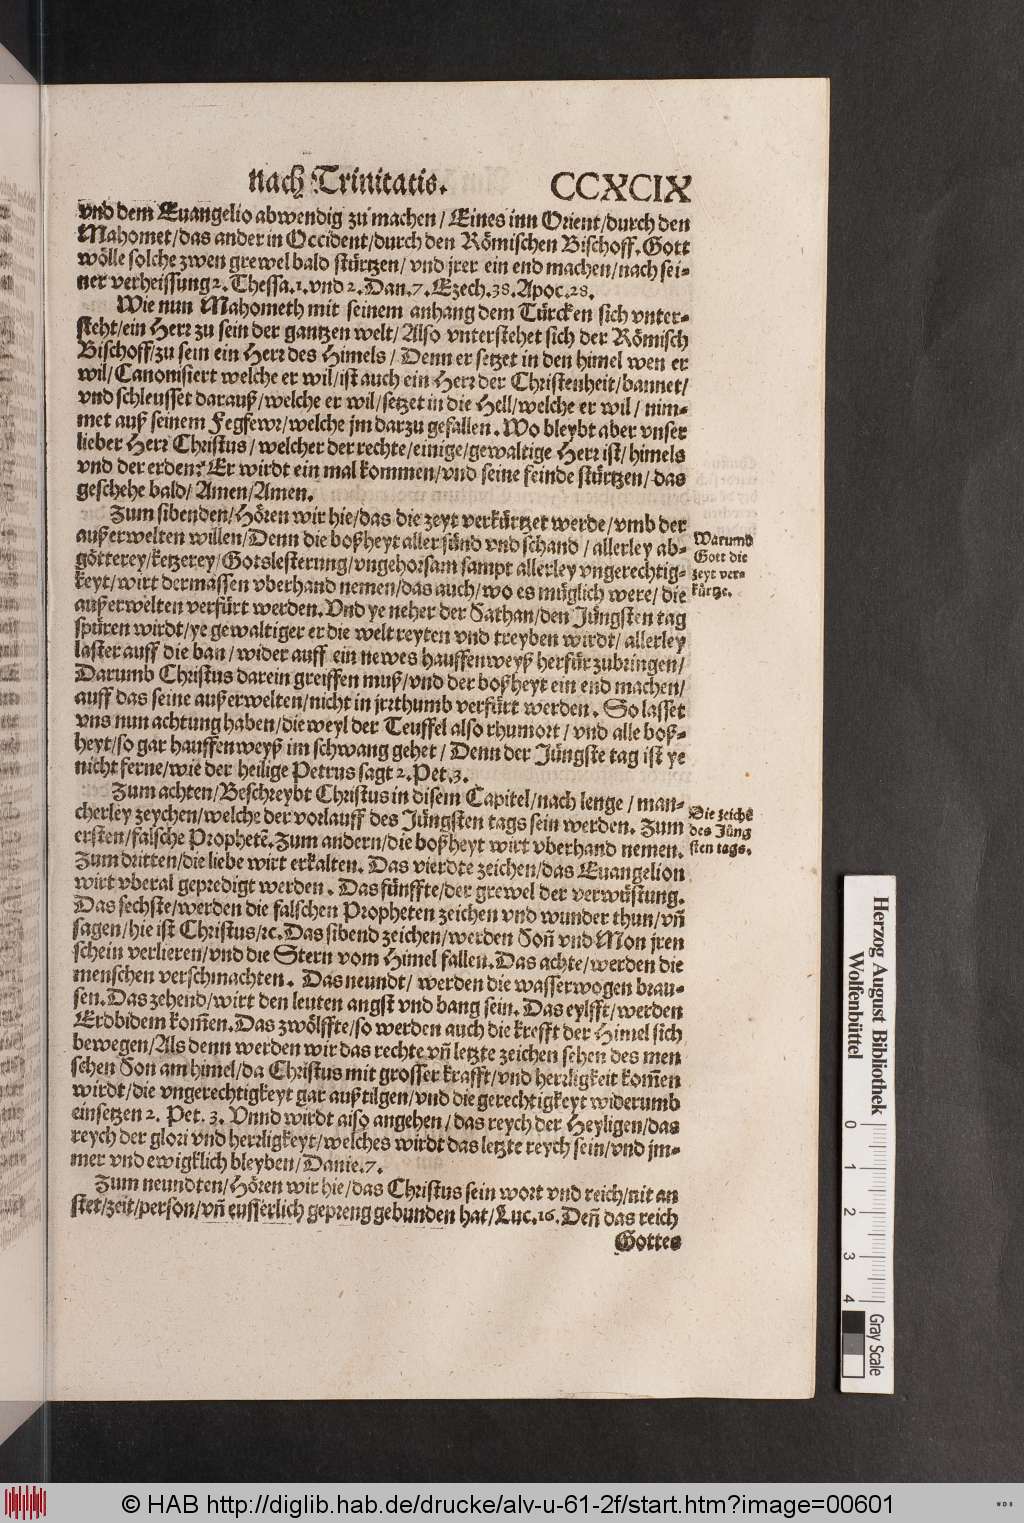 nach Trinitatis. CCXCIX
vnd dem Euangelio abwendig zu machen / Eines inn Orient/durch den
Mahomet/das ander in Occident/durch den Römischen Bischoff. Gott
wölle solche zwen grewel bald stürtzen/ vnd jrer ein end machen/nach sei-
ner verheissung 2. Thessa.1.vnd 2. Dan.7. Ezech.38. Apoc.28.
Wie nun Mahometh mit seinem anhang dem Türcken sich vnter-
steht/ein Herr zu sein der gantzen welt/Also vnterstehet sich der Römisch
Bischoff/zu sein ein Herr des Himels / Denn er setzet in den himel wen er
wil/Canonisiert welche er wil/ist auch ein Herr der Christenheit/bannet/
vnd schleusset darauß/welche er wil/setzet in die Hell/welche er wil / nim-
met auß seinem Fegfewr/welche jm darzu gefallen. Wo bleybt aber vnser
lieber Herr Christus / welcher der rechte/einige/gewaltige Herr ist/himels
vnd der erden? Er wirdt ein mal kommen/vnd seine feinde stürtzen/das
geschehe bald/ Amen/Amen.
Zum sibenden/Hören wir hie/das die zeyt verkürtzet werde/vmb der
außerwelten willen/Denn die boßheyt aller sünd vnd schand / allerley ab-
götterey/ketzerey/Gotslesterung/vngehorsam sampt allerley vngerechtig-
keyt/wirt dermassen vberhand nemen/das auch/wo es müglich were/ die
außerwelten verfürt werden. Vnd ye neher der Sathan/den Jüngsten tag
spüren wirdt/ye gewaltiger er die welt reyten vnd treyben wirdt/ allerley
laster auff die ban / wider auff ein newes hauffenweyß herfür zubringen/
Darumb Christus darein greiffen muß/vnd der boßheyt ein end machen/
auff das seine außerwelten/nicht in jrrthumb verfürt werden. So lasset
vns nun achtung haben/die weyl der Teuffel also rhumort / vnd alle boß-
heyt/so gar hauffenweyß im schwang gehet / Denn der Jüngste tag ist ye
nicht ferne/wie der heilige Petrus sagt 2. Pet.3.
Warumb
Gott die
zeyt ver-
kürtze.
Zum achten/Beschreybt Christus in disem Capitel/nach lenge / man-
cherley zeychen/welche der vorlauff des Jüngsten tags sein werden. Zum
ersten/falsche Prophetē. Zum andern/die boßheyt wirt vberhand nemen.
Zum dritten/die liebe wirt erkalten. Das vierdte zeichen/das Euangelion
wirt vberal gepredigt werden. Das fünffte/der grewel der verwüstung.
Das sechste/werden die falschen Propheten zeichen vnd wunder thun/vñ
sagen/hie ist Christus/ꝛc. Das sibend zeichen/werden Soñ vnd Mon jren
schein verlieren/vnd die Stern vom Himel fallen. Das achte/werden die
menschen verschmachten. Das neundt/ werden die wasserwogen brau-
sen. Das zehend/wirt den leuten angst vnd bang sein. Das eylfft/werden
Erdbidem kom̃en. Das zwölffte/so werden auch die krefft der Himel sich
bewegen/Als denn werden wir das rechte vñ letzte zeichen sehen des men
schen Son am himel/da Christus mit grosser krafft/vnd herrligkeit kom̃en
wirdt/die vngerechtigkeyt gar außtilgen/vnd die gerechtigkeyt widerumb
einsetzen 2. Pet. 3. Vnnd wirdt also angehen / das reych der Heyligen/das
reych der glori vnd herrligkeyt/welches wirdt das letzte reych sein/vnd jm-
mer vnd ewigklich bleyben/Danie.7.
Die zeichē
des Jüng
sten tags.
Zum neundten/Hören wir hie/das Christus sein wort vnd reich/nit an
stet/zeit/person/vñ eusserlich gepreng gebunden hat/Luc.16. Deñ das reich
Gottes
Herzog August Bibliothek
Wolfenbüttel
0 1 2 3 4
Gray Scale
© HAB http://diglib.hab.de/drucke/alv-u-61-2f/start.htm?image=00601
WDB